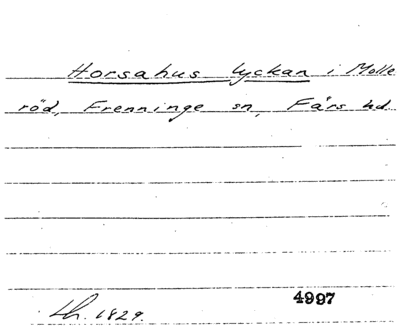 Horsahus lyckan i Molle
röd, Frenninge sn, Färs hd
4997
Lh. 1829.